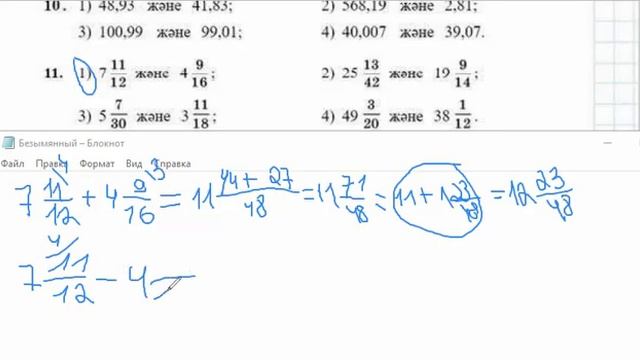 10. 1) 48,93 және 41,83; 2) 568,19 және 2,81;
3) 100,99 және 99,01; 4) 40,007 және 39,07.
11. 1) 7 11/12 және 4 9/16; 2) 25 13/42 және 19 9/14;
3) 5 7/30 және 3 11/18; 4) 49 3/20 және 38 1/12.
Безымянный – Блокнот
Файл Правка Формат Вид Справка
7 11/12 + 4 9/16 = 11 44+27/48 = 11 71/48 = 11+1 23/48 = 12 23/48
7 11/12 − 4